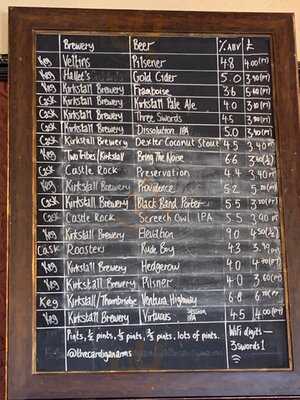 Brewery Beer % ABV £
Keg Veltins Pilsener 4.8 4.00 (PT)
Keg Hallet's Gold Cider 5.0 3.90 (PT)
Keg Kirkstall Brewery Framboise 3.6 (PT)
Cask Kirkstall Brewery Kirkstall Pale Ale 4.0 (PT)
Cask Kirkstall Brewery Three Swords 4.5 (PT)
Cask Kirkstall Brewery Dissolution IPA 5.0 (PT)
Cask Kirkstall Brewery Dexter Coconut Stout 4.5 3.40 (PT)
Keg Two Tribes/Kirkstall Bring The Noise 6.6
Cask Castle Rock Preservation 4.4 3.40 (PT)
Keg Kirkstall Brewery Providence 5.2 (PT)
Cask Kirkstall Brewery Black Band Porter 5.5 (PT)
Cask Castle Rock Screech Owl IPA 5.5 (PT)
Keg Kirkstall Brewery Elevation 9.0 4.50 (½)
Cask Roosters Rude Boy 4.3 (PT)
Keg Kirkstall Brewery Hedgerow 4.0 (PT)
Keg Kirkstall Brewery Pilsner 4.0 3.60 (PT)
Keg Kirkstall/Thornbridge Ventura Highway 6.8 (PT)
Keg Kirkstall Brewery Virtuous Session IPA 4.5 4.00 (PT)
Pints, ½ pints, ⅓ pints, ⅔ pints, lots of pints.
@thecardiganarms
WiFi digits —
3swords1